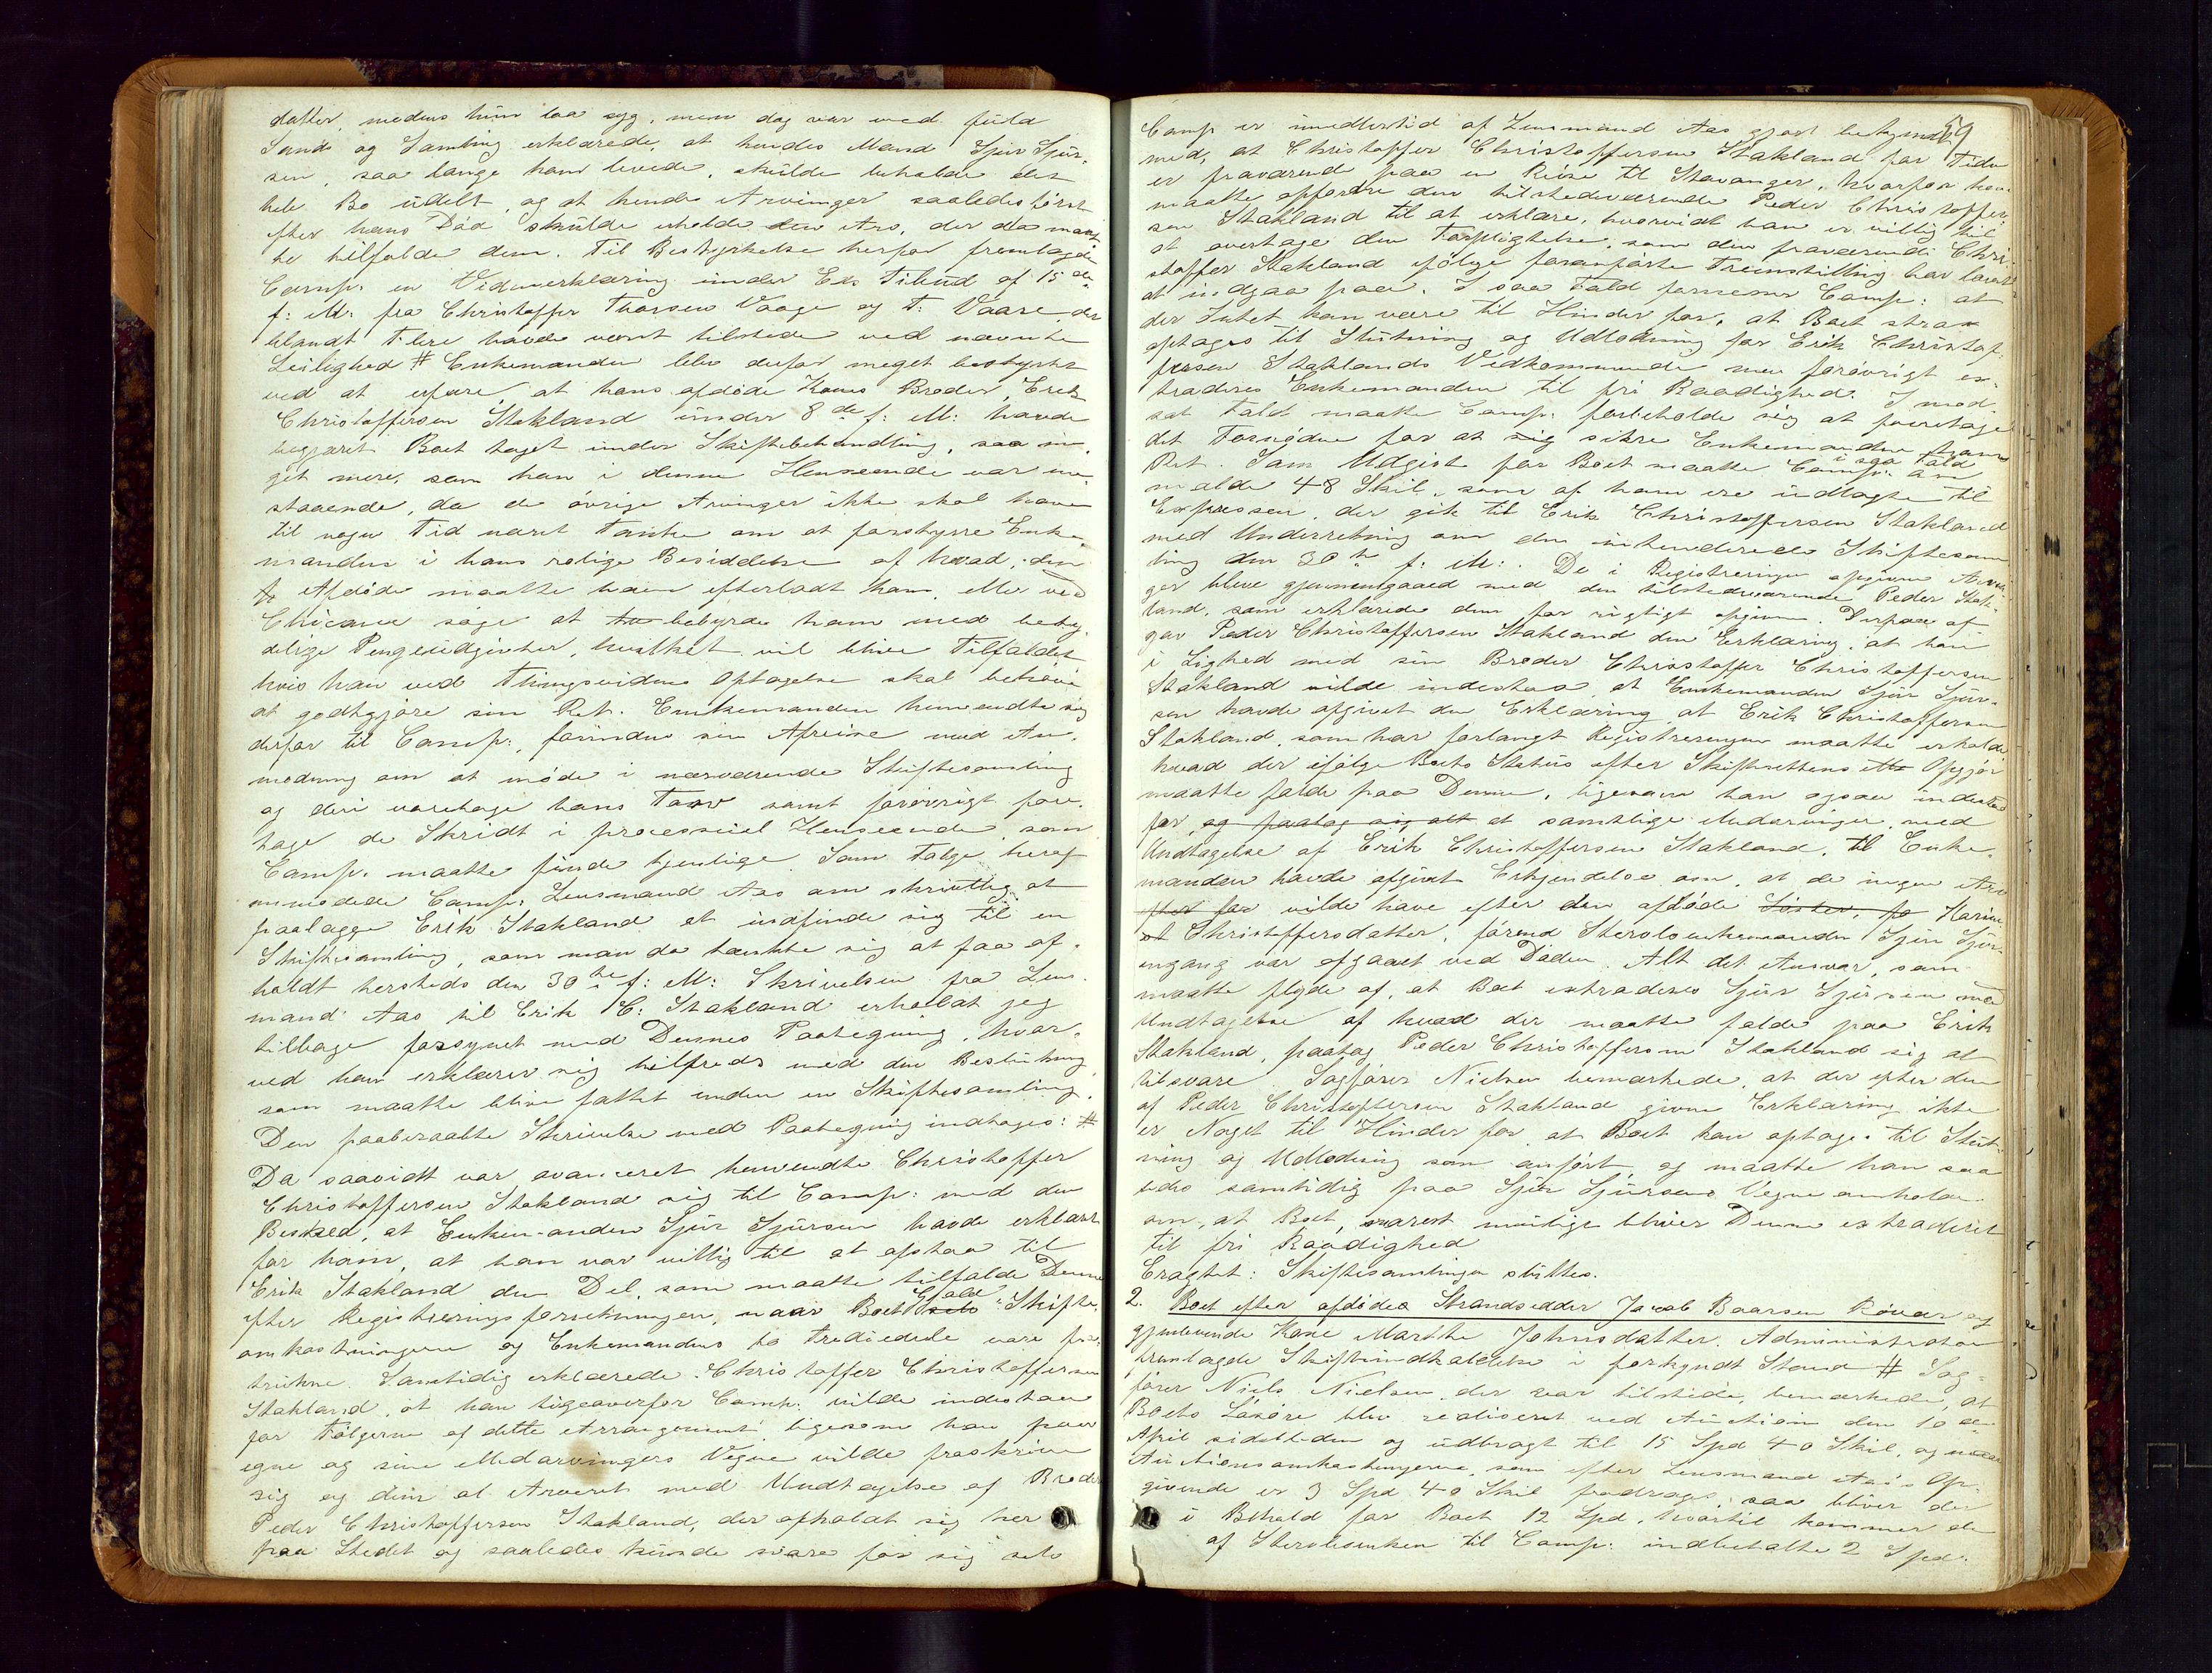 datter, medens hun laa syg, men dog var ved fuld
Sands og Samling erklærede, at hendes Mand Sjur Sjur-
sen, saa længe han levede, skulde beholde det
hele Bo udelt, og at hendes Arvinger saaledes først
efter hans Død skulde erholde den Arv, der da maat-
te tilfalde dem. Til Bestyrkelse herfor fremlagde
Comp: en Vidneerklæring under Eds Tilbud af 15de
f: M: fra Christoffer Thorsen Vaage og T. Vaare, der
blandt Flere havde været tilstede ved nævnte
Leilighed # Enkemanden blev derfor meget bestyrtet
ved at erfare, at hans afdøde Kones Broder, Erik
Christoffersen Stakland under 8de f: M: havde
begjæret Boet taget under Skiftebehandling, saa me-
get mere, som han i denne Henseende var ene-
staaende, da de øvrige Arvinger ikke skal have
til nogen Tid næret Tanke om at forstyrre Enke-
manden i hans rolige Besiddelse af hvad den
Afdøde maatte have efterladt ham, eller ved
Chicane søge at bebyrde ham med bety-
delige Pengeudgivter, hvilket vil blive Tilfældet
hvis han ved Thingsvidnes Optagelse skal behøve
at godtgjøre sin Ret. Enkemanden henvendte sig
derfor til Comp:, forinden sin Afreise med An-
modning om at møde i nærværende Skiftesamling
og deri varetage hans Tarv samt forøvrigt fore-
tage de Skridt i processuel Henseende, som
Comp. maatte finde tjenlige. Som Følge heraf
anmodede Comp: Lensmand Aas om skriftlig at
paalægge Erik Stakland at indfinde sig til en
Skiftesamling, som man da tænkte sig at faa af-
holdt hersteds den 30te f: M: Skrivelsen fra Lens-
mand Aas til Erik C: Stakland erholdt jeg
tilbage forsynet med Dennes Paategning, hvor-
ved han erklærer sig tilfreds med den Beslutning,
som maatte blive fattet under en Skiftesamling.
Den paaberaabte Skrivelse med Paategning indtages: #
Da saavidt var avanceret henvendte Christoffer
Christoffersen Stakland sig til Comp: med den
Besked, at Enkemanden Sjur Sjursen havde erklært
for ham, at han var villig til at afstaa til
Erik Stakland den Del, som maatte tilfalde Denne
efter Registreringsforretningen, naar Boets Gjæld Skifte-
omkostningerne og Enkemandens to Trediedele vare fra-
trukne. Samtidig erklærede Christoffer Christoffersen
Stakland, at han ligeoverfor Comp: vilde indestaae
for Følgerne af dette Arrangement, ligesom han paa
egne og sine Medarvingers Vegne vilde fraskrive
sig og dem al Arveret med Undtagelse af Broder
Peder Christoffersen Stakland, der opholdt sig her
paa Stedet og saaledes kunde svare for sig selv

59
Comp er imidlertid af Lensmand Aas gjort bekjendt
med, at Christoffer Christoffersen Stakland for Tiden
er fraværende paa en Reise til Stavanger, hvorfor han
maatte opfordre den tilstedeværende Peder Christoffer-
sen Stakland til at erklære, hvorvidt han er villig til
at overtage den Forpligtelse, som den fraværende Chri-
stoffer Stakland ifølge foranførte Fremstilling har lovet
at indgaa paa. I saa Fald formener Comp: at
der Intet kan være til Hinder for, at Boet strax
optages til Slutning og Udlodning for Erik Christof-
fersen Staklands Vedkommende men forøvrigt ex-
traderes Enkemanden til fri Raadighed. I mod-
sat Fald maatte Comp: forbeholde sig at foretage
det Fornødne for at sikre Enkemanden hans
Ret. Som Udgivt for Boet maatte Comp: i saa Fald an-
melde 48 Skil., som af ham ere udlagte til
Expressen, der gik til Erik Christoffersen Stakland
med Underretning om den intenderede Skiftesam-
ling den 30te f: M:. De i Registreringen opgivne Arvin-
ger bleve gjennemgaaed med den tilstedeværende Peder Stak-
land, som erklærede dem for rigtigt opgivne. Derpaa af-
gav Peder Christoffersen Stakland den Erklæring, at han
i Lighed med sin Broder Christoffer Christoffersen
Stakland vilde indestaa, at Enkemanden Sjur Sjur-
sen havde afgivet den Erklæring, at Erik Christoffersen
Stakland, som har forlangt Registreringen maatte erholde
hvad der ifølge Boets Status efter Skifterettens Opgjør
maatte falde paa Denne, ligesom han ogsaa indestod
for, og paatog sig alt at samtlige Medarvinger, med
Undtagelse af Erik Christoffersen Stakland, til Enke-
manden havde afgivet Erkjendelse om, at de ingen Arv
vilde have efter den afdøde Søster, Karine
Christoffersdatter, førend Stervboenkemanden Sjur Sjur-
engang var afgaaet ved Døden. Alt det Ansvar, som
maatte flyde af, at Boet extraderes Sjur Sjursen med
Undtagelse af hvad der maatte falde paa Erik
Stakland, paatog Peder Christoffersen Stakland sig at
tilsvare. Sagfører Nielsen bemærkede, at der efter den
af Peder Christoffersen Stakland givne Erklæring ikke
er Noget til Hinder for at Boet kan optages til Slut-
ning og Udlodning som anført, og maatte han saa-
ledes samtidig paa Sjur Sjursens Vegne anholde
om, at Boet, snarest muligt bliver Denne extraderet
til fri Raadighed
Eragtet: Skiftesamlingen sluttes.
2. Boet efter afdøde Strandsidder Jacob Baarsen Røvær og
gjenlevende Kone Marthe Johnsdatter. Administrator
fremlagde Skifteindkaldelse i forkyndt Stand # Sag-
fører Niels Nielsen, der var tilstede, bemærkede, at
Boets Løsøre blev realiseret ved Auction den 10de
April sidstleden og udbragt til 15 Spd 40 Skil, og naar
Auctionsomkostningerne, som efter Lensmand Aas's Op-
givende er 3 Spd 40 Skil fradrages, saa bliver der
i Behold for Boet 12 Spd, hvortil kommer de
af Stervboenken til Comp: indbetalte 2 Spd.